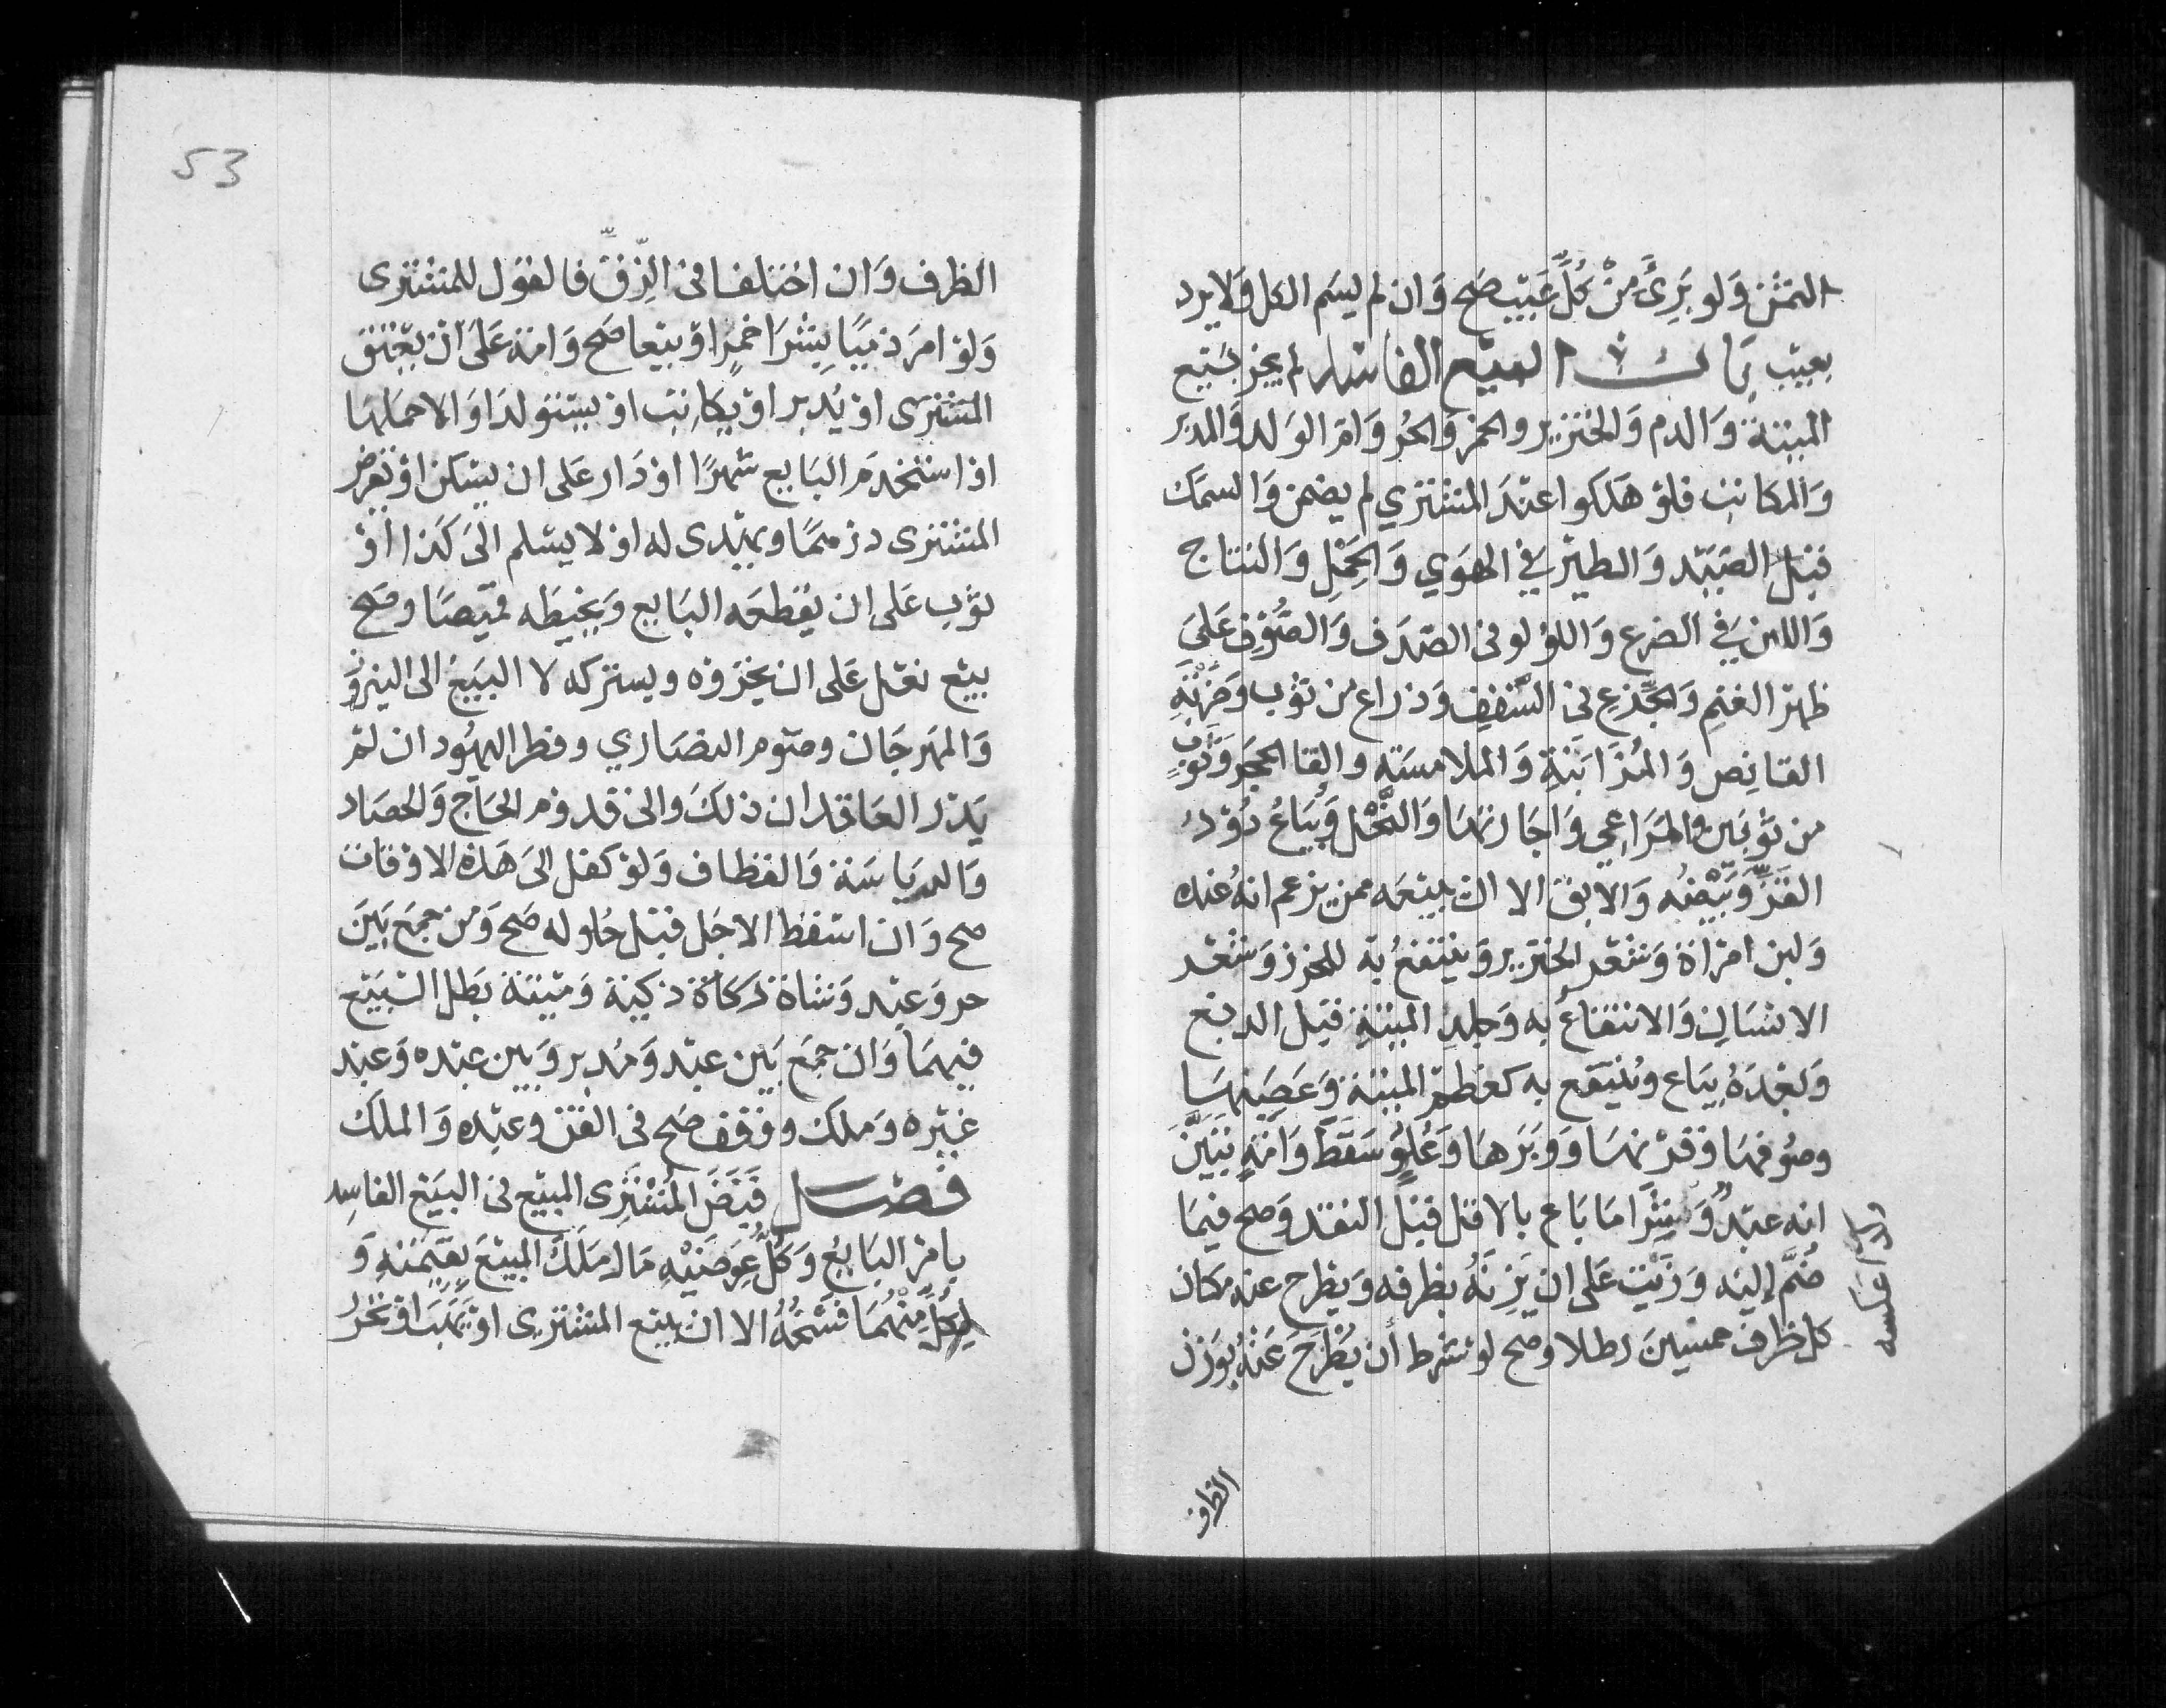 الثمن وَلو بَرِئَ مِنْ كُلِّ عَيْب صَح وَان لم يسَم الكل وَلا يرد
بعيب بَاب البيع الفاسد لم يجز بَيْع
الميتة وَالدم وَالخنزير والخمر وَالحُر وَام الوَلد وَالمدَبر
وَالمكاتب فلو هَلكوا عندَ المشتري لم يضمن وَالسمَك
قبل الصَيْد وَالطير فِي الهوَي وَالحَمْلِ وَالنتاج
وَاللبن فِي الضرع وَاللؤلو فى الصَدَف وَالصُوفِ عَلىَ
ظهر الغنم وَالجِذع فى السَّقفِ وَذراع من ثوب وَضَرْبَةِ
القانِص وَالمُزَابَنَةِ وَالملامسَة والقا الحجر وَثَوْبٍ
من ثَوبَين والمَرَاعِي وَاجَارتهَا وَالنَّحْل وَيُبَاعُ دُوْدُ
القَزِّ وَبَيْضُه وَالابق الا ان يبيعَه ممن يزعم انهُ عنده
وَلبن امرَاة وَشعَر الخنزير وَينتفعُ به للخرز وَشعَر
الانسَان وَالانتفاعُ به وَجلدِ الميتةِ قبل الدبغ
وَبعْدَهُ يبَاع وَيُنتفع به كعَظم الميتة وَعَصَبِهَا
وصُوفهَا وَقرْنهَا وَوَبَرَهَا وَعُلوٍّ سَقَطَ وَامَةٍ تبَيَّنَ
انه عبْدٌ وَشِرَا مَا بَاع بالاقل قبل النقد وَصح فيمَا
ضُمَّ إليه وَزَيْت عَلى ان يَزِنَهُ بظرفه وَيطرح عنه مكان
كل ظرف خمسِينَ رطلا وصح لو شرط أن يُطْرَحَ عَنْهُ بوَزن
الظرف
53
الظرف وَان اختلفا فى الزِّقِّ فالقول للمشترى
وَلو امرَ ذمّيًا بِشرَا خمر او بيعها صَح وَامة عَلَى ان يعْتق
المشترى او يُدبر او يكاتِب او يستولدَ او الا حملهَا
او استخدمَ البَايع شهرًا او دَار عَلى ان يسكن او يقرض
المشترى درهمًا وَيهدى له او لا يسْلم الىَ كذا او
ثوب عَلى ان يقطعَه البَايع وَيخيطه قميصًا وصَح
بيْع نعْل عَلى ان يحذوه ويشركه لا البَيْع الى النيروز
وَالمَهرجَان وصَوم النصَاري وفطر اليهُود ان لم
يَدْر العَاقدان ذلكَ وَالى قدوم الحَاج وَالحصَاد
وَالدياسَة وَالقطاف وَلو كفل الىَ هَذه الاوقات
صح وَان اسقط الاجَل قبْل حُلوله صَح وَمن جمعَ بَينَ
حر وَعبْد وَشاة ذكاة ذكية وَميتة بَطل البَيْع
فيهمَا وَان جمعَ بَين عبد وَمُدبر وَبين عبده وَعَبد
غيره وَملك ووَقف صَح فى القن وعبْده وَالملك
فصْل قَبَضَ المُشتَرِى المبيْع فى البَيع الفاسِد
بامر البَايع وَكُلّ عِوَضَيْهِ مَال مَلكَ المَبيْعَ بقِيمَتِهِ وَ
لِكُلٍّ مِنْهُمَا فَسْخُهُ الا ان يبيع المشترى او يَهَبَ او يُحَررُ